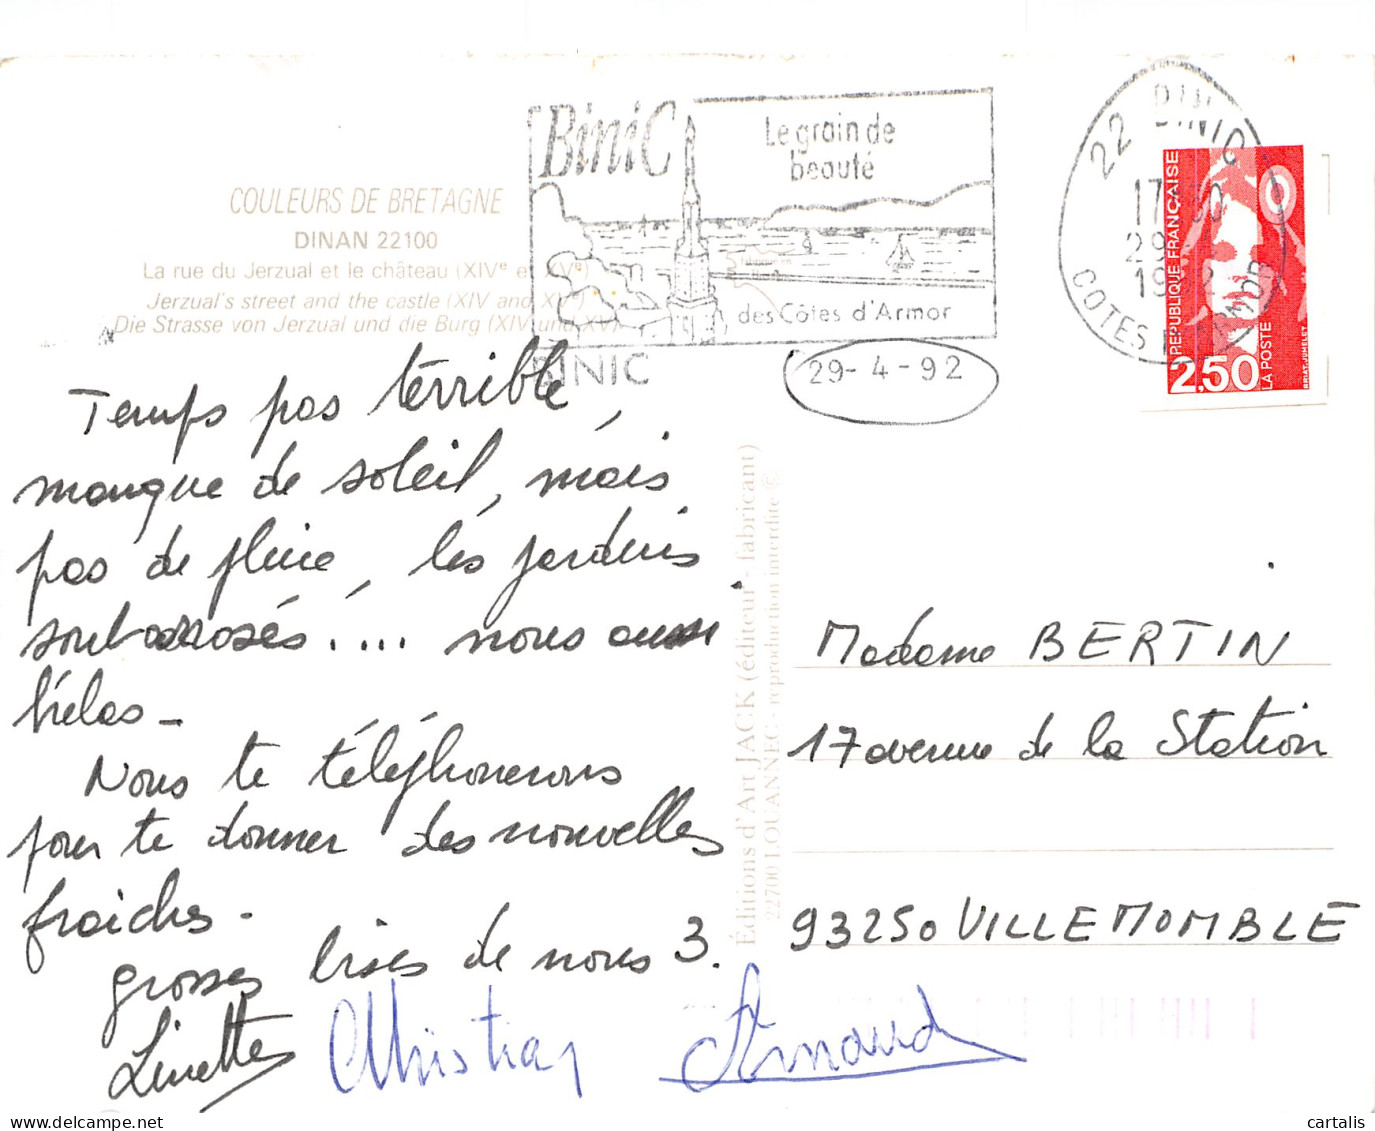 BiniC
Le grain de
beauté
des Côtes d'Armor
BINIC
29-4-92
22 BINIC
17 00
29
1992
COTES D'ARMOR
REPUBLIQUE FRANÇAISE
2,50
LA POSTE
BRIAT-JUMELET
COULEURS DE BRETAGNE
DINAN 22100
La rue du Jerzual et le château (XIVe et XVe)
Jerzual's street and the castle (XIV and XV)
Die Strasse von Jerzual und die Burg (XIV und XV)
Temps pas terrible,
manque de soleil, mais
pas de pluie, les jardins
sont arrosés..... nous aussi
hélas -
Nous te téléphonerons
pour te donner des nouvelles
fraiches.
grosses bises de nous 3.
Linette Christian Arnaud
Éditions d'Art JACK (éditeur - fabricant)
22700 LOUANNEC - reproduction interdite ©
Madame BERTIN
17 avenue de la Station
93250 VILLEMOMBLE
cartalis.com